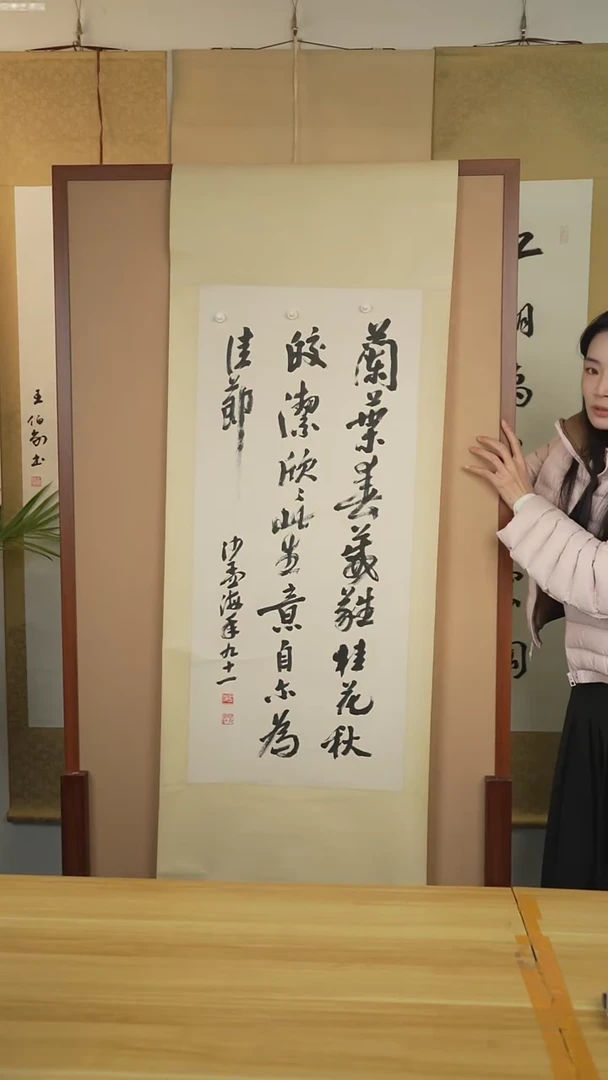 蘭葉春葳蕤桂花秋
皎潔欣〻此生意自尔為
佳節
沙孟海年九十一
王伯敏书